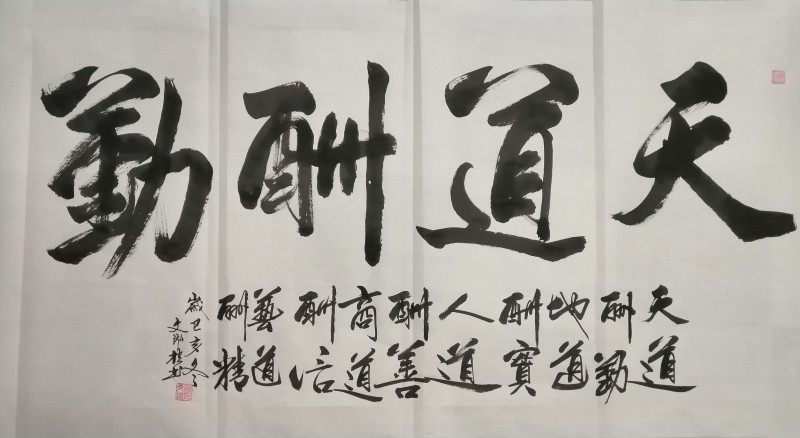 天道酬勤
天道
酬勤
地道
酬寶
人道
酬善
商道
酬信
藝道
酬精
歲己亥冬
文